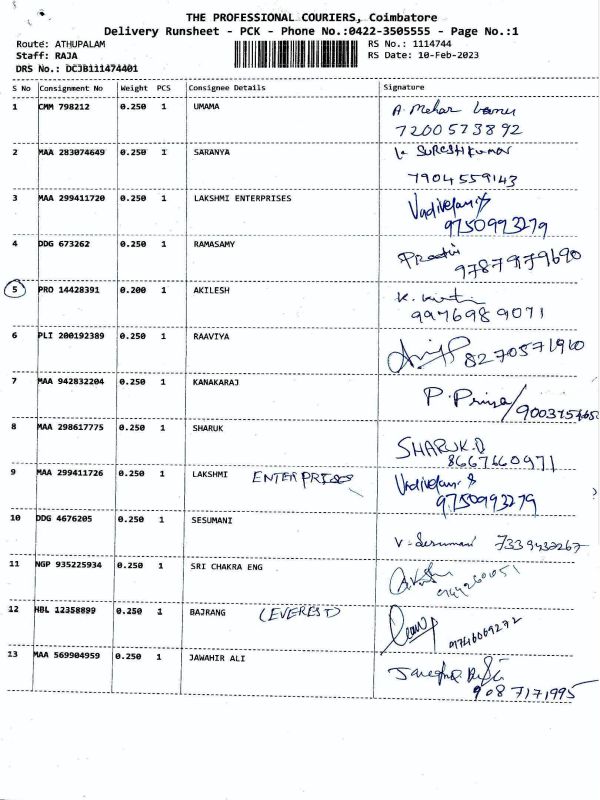 THE PROFESSIONAL COURIERS, Coimbatore
Delivery Runsheet - PCK - Phone No.:0422-3505555 - Page No.:1
Route: ATHUPALAM RS No.: 1114744
Staff: RAJA RS Date: 10-Feb-2023
DRS No.: DCJB111474401
S No Consignment No Weight PCS Consignee Details Signature
1 CMM 798212 0.250 1 UMAMA A. Mehar
7200573892
2 MAA 283074649 0.250 1 SARANYA SURESHKUMAR
7904559143
3 MAA 299411720 0.250 1 LAKSHMI ENTERPRISES
9750993279
4 DDG 673262 0.250 1 RAMASAMY
9787979690
5 PRO 14428391 0.200 1 AKILESH K.
9976989071
6 PLI 200192389 0.250 1 RAAVIYA
8270571960
7 MAA 942832204 0.250 1 KANAKARAJ P. Priya/
8 MAA 298617775 0.250 1 SHARUK SHARUK.D
8667660971
9 MAA 299411726 0.250 1 LAKSHMI ENTERPRISES
9750993279
10 DDG 4676205 0.250 1 SESUMANI V. Sesumani 7339432267
11 NGP 935225934 0.250 1 SRI CHAKRA ENG
12 HBL 12358899 0.250 1 BAJRANG (EVEREST)
9746069272
13 MAA 569904959 0.250 1 JAWAHIR ALI
9087171995